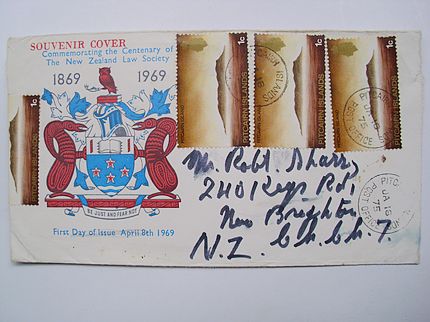 SOUVENIR COVER
Commemorating the Centenary of
The New Zealand Law Society
1869 1969
BE JUST AND FEAR NOT
First Day of Issue April 8th 1969
1c
1c
1c
1c
PITCAIRN ISLANDS
PITCAIRN ISLANDS
PITCAIRN ISLANDS
PITCAIRN ISLANDS
POST OFFICE
75
JA 16
75
POST OFFICE
Mr. Robt.
Rd
New Brighton
N.Z. Ch.Ch. 7.